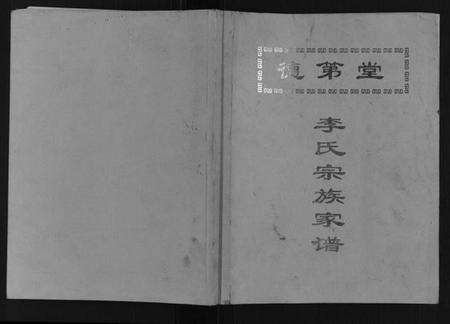 第堂
李氏宗族家谱